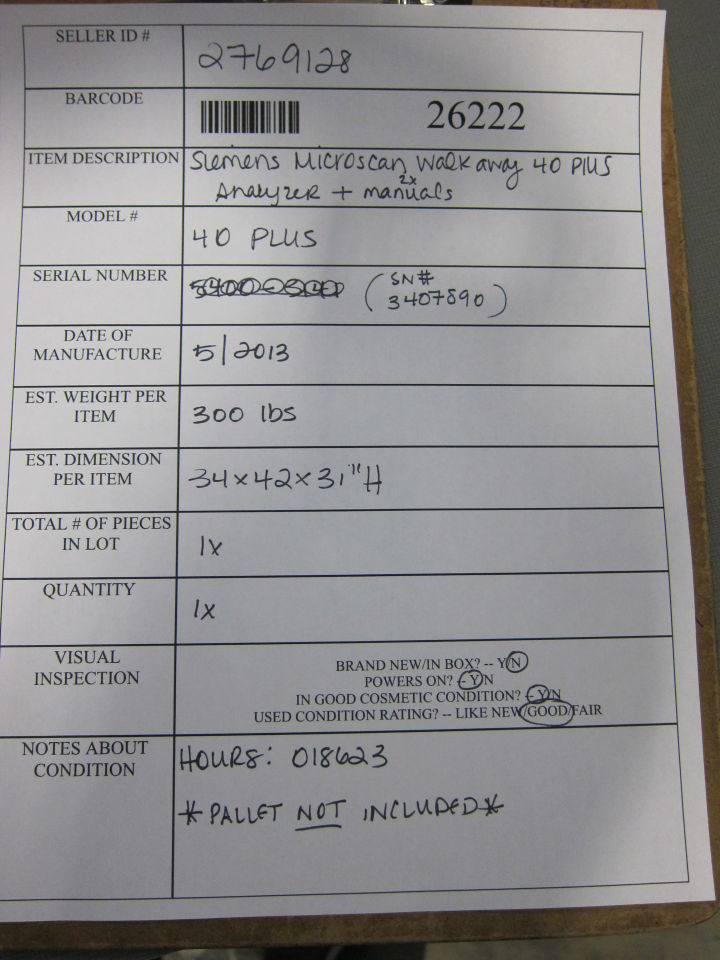 SELLER ID #
2769128
BARCODE
26222
ITEM DESCRIPTION
Siemens Microscan Walkaway 40 Plus
Analyzer + 2x manuals
MODEL #
40 PLUS
SERIAL NUMBER
(SN#
3407890)
DATE OF
MANUFACTURE
5/2013
EST. WEIGHT PER
ITEM
300 lbs
EST. DIMENSION
PER ITEM
34x42x31"H
TOTAL # OF PIECES
IN LOT
1x
QUANTITY
1x
VISUAL
INSPECTION
BRAND NEW/IN BOX? -- Y/N
POWERS ON? -- Y/N
IN GOOD COSMETIC CONDITION? -- Y/N
USED CONDITION RATING? -- LIKE NEW/GOOD/FAIR
NOTES ABOUT
CONDITION
HOURS: 018623
*PALLET NOT INCLUDED*